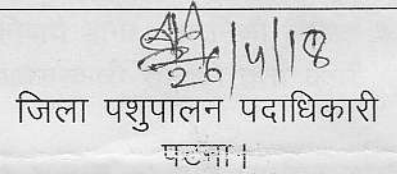 26/5/18
जिला पशुपालन पदाधिकारी
पटना।